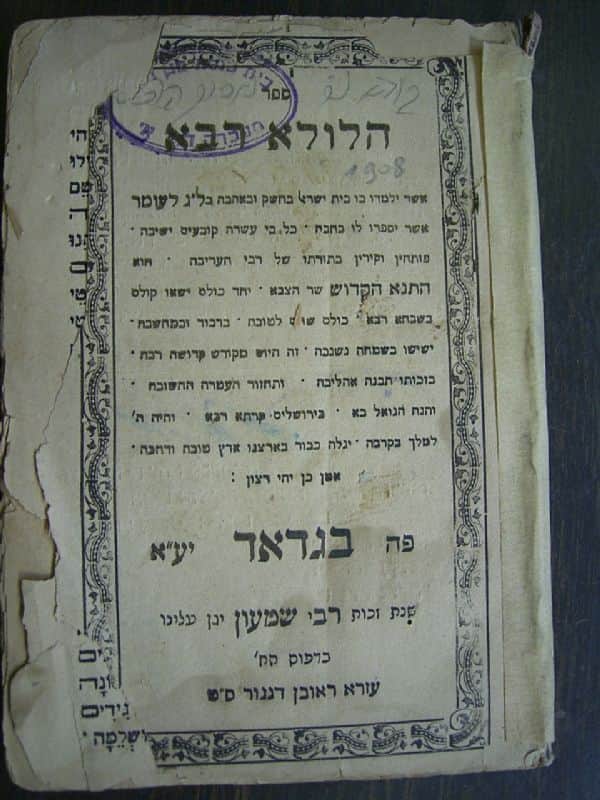 ספר
הלולא רבא
1908
אשר ילמדו בו בית ישראל בחשק ובאהבה בל״ג לעומר
אשר יספרו לו כחבה · כל בי עשרה קובעים ישיבה ·
פותחין וקורין בתורתו של רבי העריבה · הוא
התנא הקדוש שר הצבא · יחד כולם ישאו קולם
בשבחא רבא · כולם שוים לטובה · בדבור ובמחשבה ·
ישישו בשמחה נשגבה · זה היום מקודש קדושה רבה ·
בזכותו תבנה אהליבה · ותחזור העטרה החשובה ·
והנה הגואל בא · בירושלים קרתא רבא · והיה ה׳
למלך בקרבה · יגלה כבוד בארצנו ארץ טובה ורחבה ·
אמן כן יהי רצון :
פה בגדאד יע״א
שנת זכות רבי שמעון יגן עלינו
בדפוס הח׳
עזרא ראובן דנגור ס״ט
ים
ונה
גידים